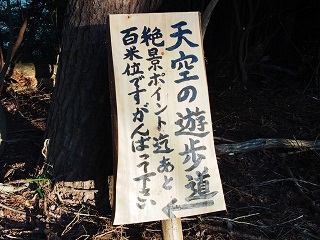 天空の遊歩道
絶景ポイント迄あと
百米位ですがんばって下さい
←